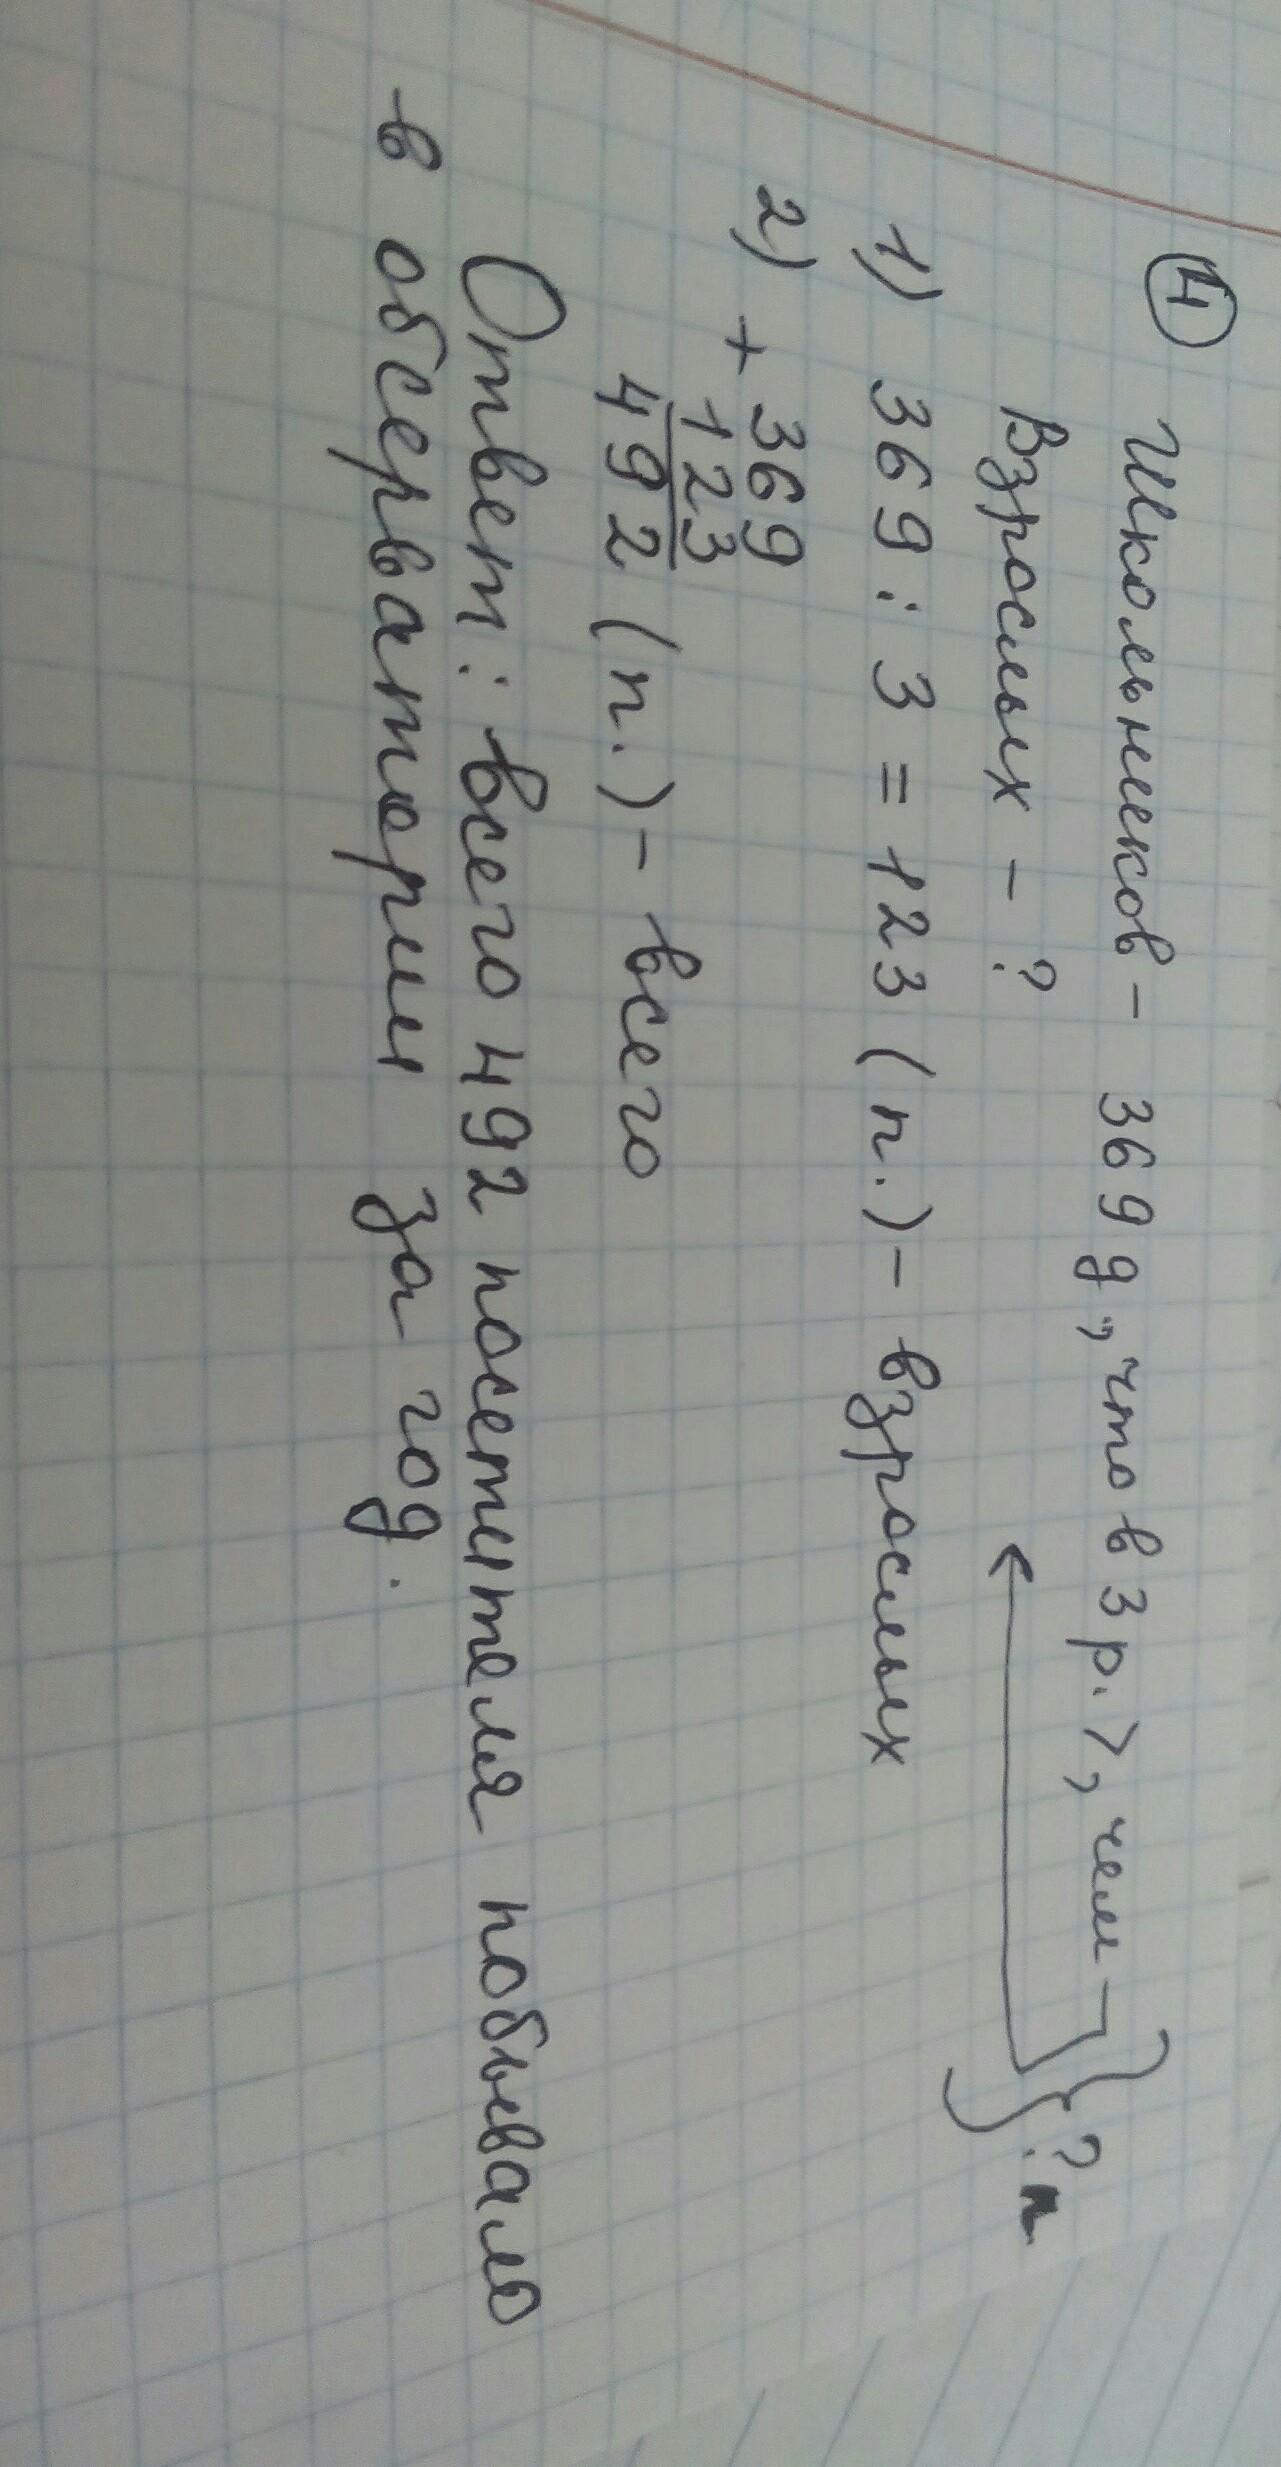 4 Школьников - 369 д., что в 3 р. >, чем
Взрослых - ? } ? п
1) 369 : 3 = 123 (п.) - взрослых
2) + 369
123
492 (п.) - всего
Ответ: всего 492 посетителя побывало
в обсерватории за год.